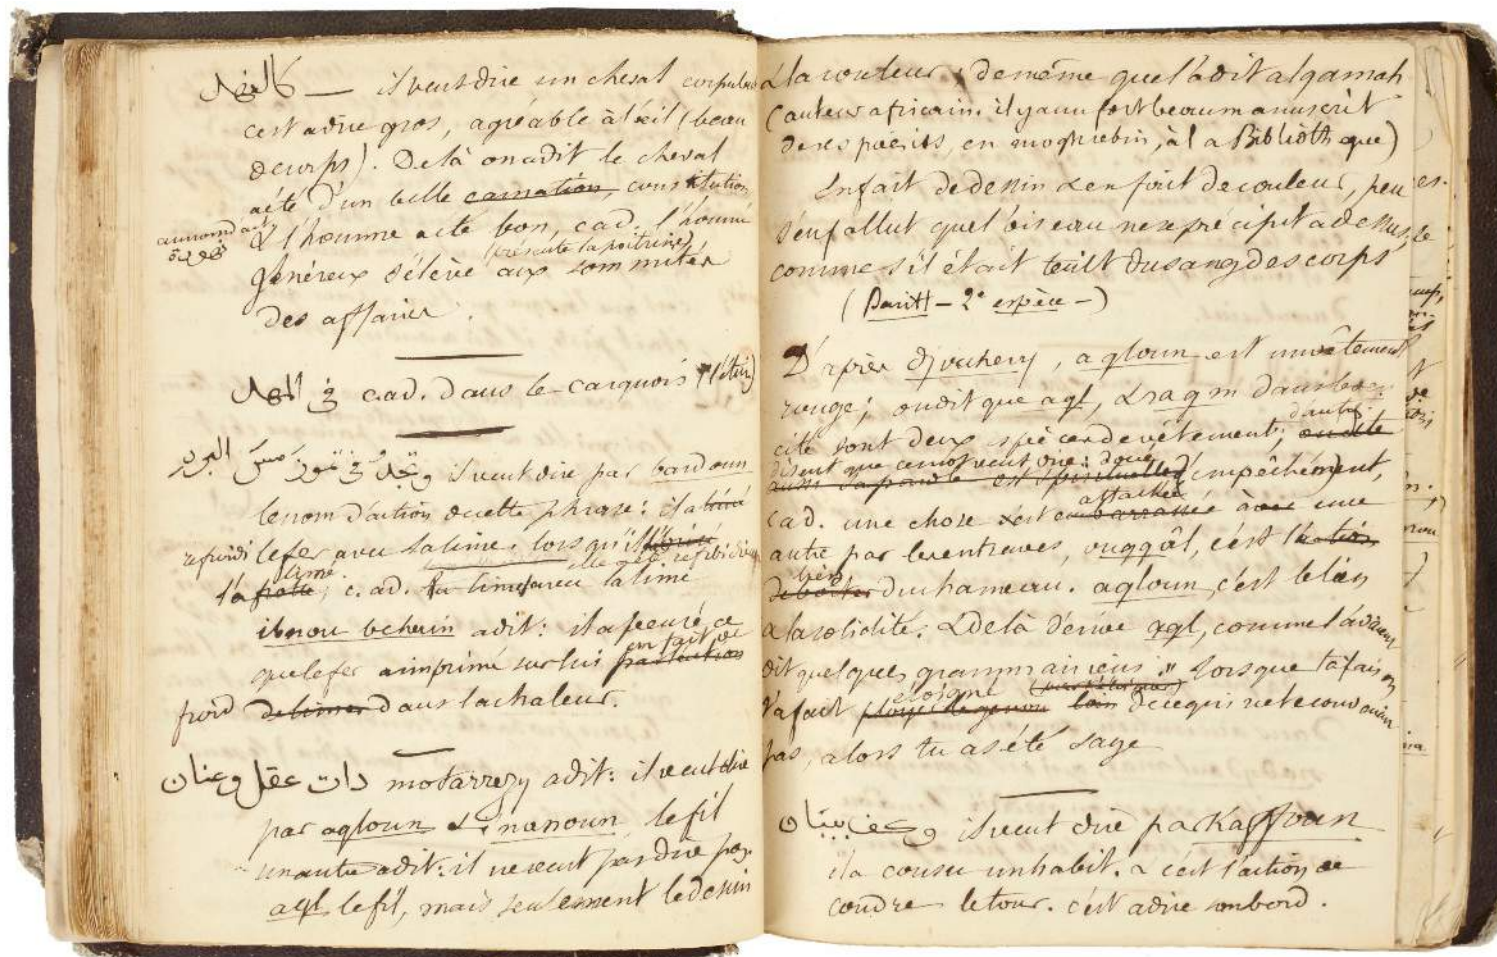 كالنهد — il veut dire un cheval corpulent
c'est a dire gros, agréable à l'œil (beau
de corps). De là on a dit le cheval
a été d'un belle carnation, constitution
au nom d'act
& l'homme a été bon, cad. l'homme
(présente la poitrine)
généreux s'élève aux sommités
des affaires.
في المهد c.ad. dans le carquois (l'étui)
وتجد في تموز مس البرد il veut dire par bardoun
le nom d'action de cette phrase: il a limé
refroidi le fer avec la lime. lorsqu'il
limé.
l'a frotté, c. ad. avec la lime
ibnou bcherin a dit: il a pensé, ce
en fait, de
que le fer a imprimé sur lui
froid de limer dans la chaleur.
ذات عقل وعنان motarrezy a dit: il veut dire
par aqloun & inanoun le fil
un autre a dit: il ne veut pas dire par
aql le fil, mais seulement le dessin
& la couleur; de même que l'a dit alqamah
(auteur africain. il y a un fort beau manuscrit
de ses poésies, en moghrebin, à la Bibliothèque)
En fait de dessin & en fait de couleur, peu
s'en fallut que l'oiseau ne se précipita dessus,
comme s'il était teint du sang des corps
(Basitt - 2e espèce -)
D'après djouhery, aqloun est un vêtement
rouge; on dit que aql, & raqm dans le
d'autres
cité sont deux espèces de vêtement; on dit
disent que ce mot veut dire: d'empêchement,
attachée
cad. une chose est embarrassée avec une
autre par les entraves, ouqqâl, c'est l'action
lien
de boiter du chameau. aqloun, c'est le lien
& la solidité. & de là dérive aql, comme l'a
dit quelques grammairiens: " lorsque ta raison
éloigné
t'a fait ployer le genou loin de ce qui ne te convenait
pas, alors tu as été sage
وكف ببنان il veut dire par Kaffoun
il a cousu un habit. & c'est l'action de
coudre le tour. c'est a dire son bord.